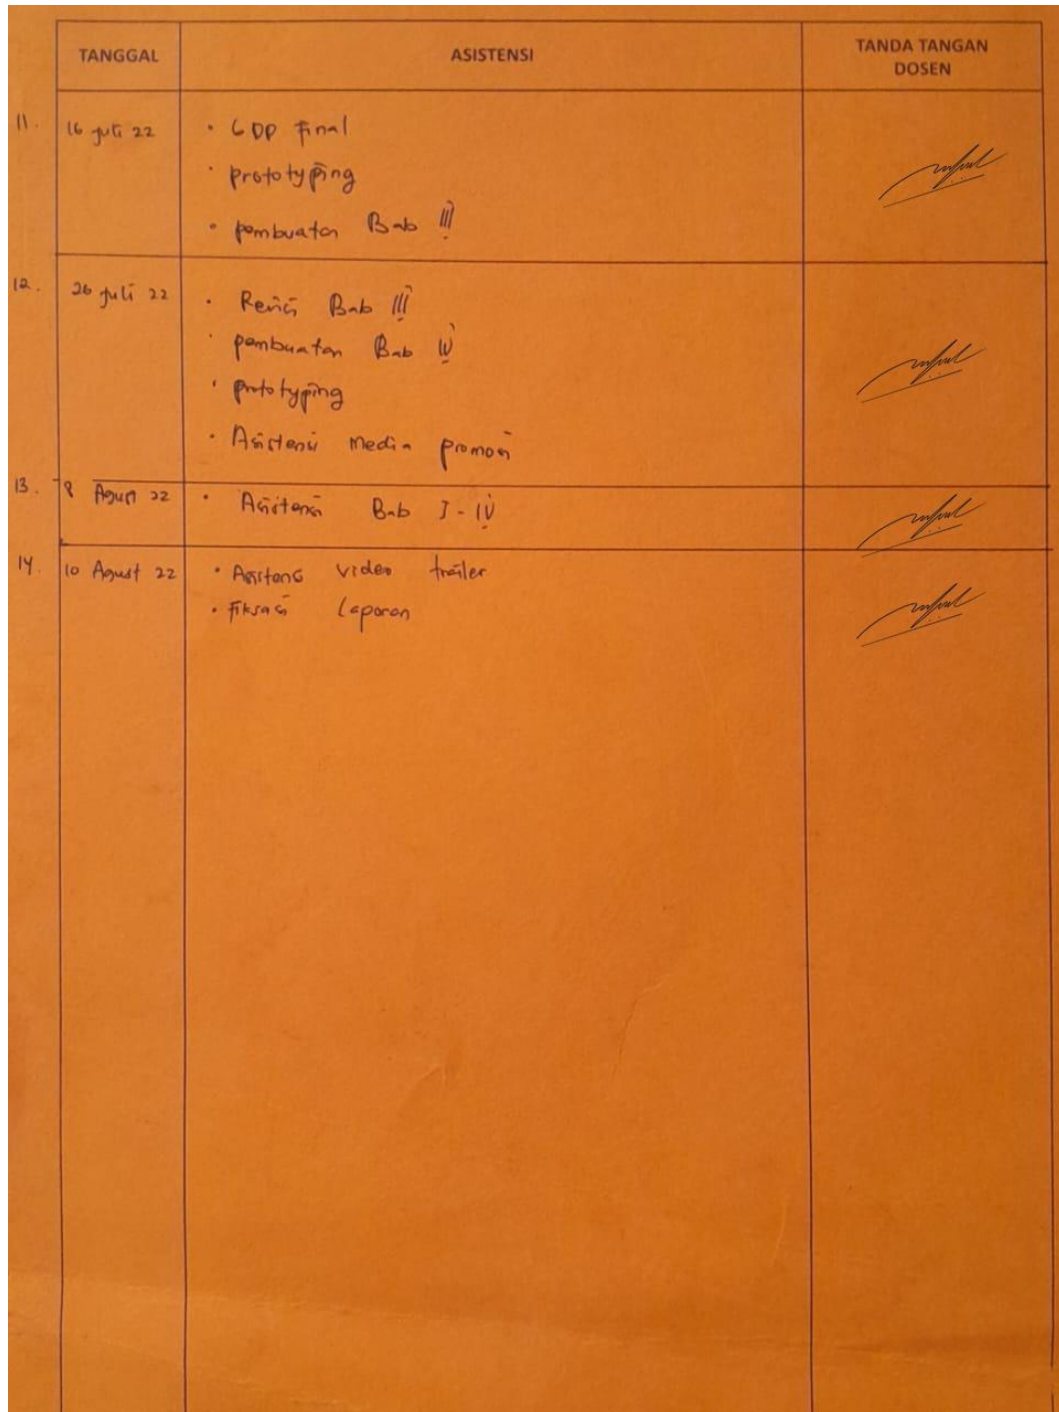 TANGGAL
ASISTENSI
TANDA TANGAN
DOSEN
11. 16 Juli 22
• GDP Final
• prototyping
• pembuatan Bab III
12. 26 Juli 22
• Revisi Bab III
• pembuatan Bab IV
• prototyping
• Asistensi Media promosi
13. 8 Agust 22
• Asistensi Bab I - IV
14. 10 Agust 22
• Asistensi video trailer
• Fiksasi Laporan